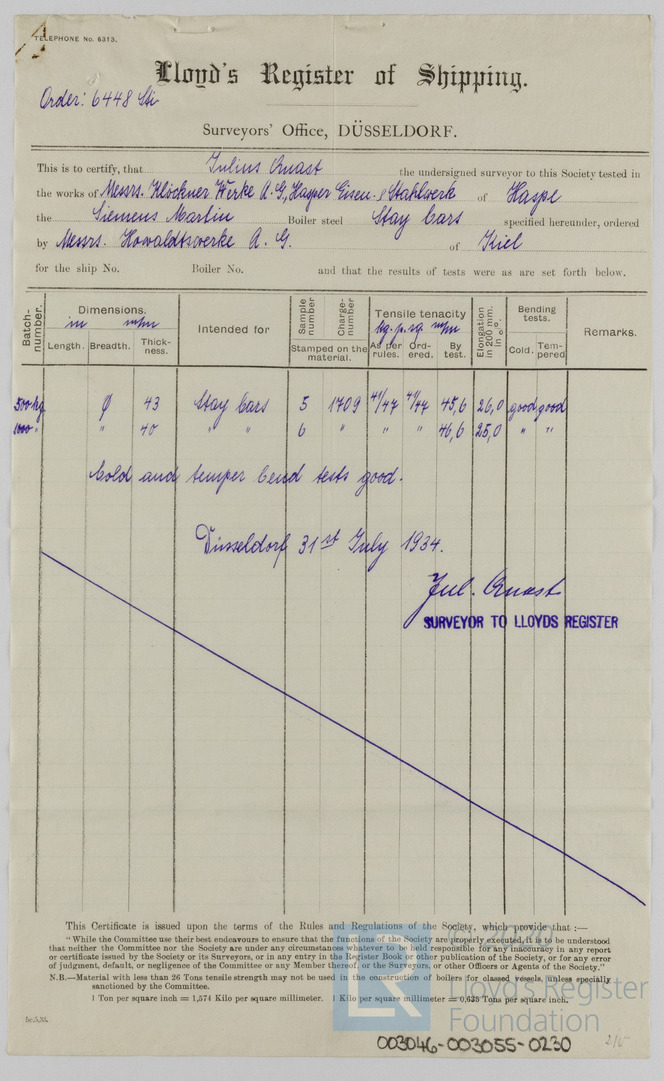 TELEPHONE No. 6313.
Lloyd's Register of Shipping.
Order: 6448 Sti
Surveyors' Office, DÜSSELDORF.
This is to certify, that Julius Quast the undersigned surveyor to this Society tested in
the works of Messrs. Klöckner Werke A.G., Hasper Eisen- & Stahlwerk of Haspe
the Siemens Martin Boiler steel Stay bars specified hereunder, ordered
by Messrs. Howaldtswerke A.G. of Kiel
for the ship No. Boiler No. and that the results of tests were as are set forth below.
Batch-number. Dimensions. in m/m Length. Breadth. Thick-ness. Intended for Sample number Charge-number Stamped on the material. Tensile tenacity kg. p. sq. m/m As per rules. Ord-ered. By test. Elongation in 200 mm. in %. Bending tests. Cold. Tem-pered Remarks.
500 kg φ 43 Stay bars 5 1709 41/47 41/47 45,6 26,0 good good
1000 " " 40 " " 6 " " " 46,6 25,0 " "
Cold and temper bend tests good.
Düsseldorf 31st July 1934.
Jul. Quast
SURVEYOR TO LLOYDS REGISTER
This Certificate is issued upon the terms of the Rules and Regulations of the Society, which provide that :—
"While the Committee use their best endeavours to ensure that the functions of the Society are properly executed, it is to be understood
that neither the Committee nor the Society are under any circumstances whatever to be held responsible for any inaccuracy in any report
or certificate issued by the Society or its Surveyors, or in any entry in the Register Book or other publication of the Society, or for any error
of judgment, default, or negligence of the Committee or any Member thereof, or the Surveyors, or other Officers or Agents of the Society."
N.B.—Material with less than 26 Tons tensile strength may not be used in the construction of boilers for classed vessels, unless specially
sanctioned by the Committee.
1 Ton per square inch = 1,574 Kilo per square millimeter. 1 Kilo per square millimeter = 0,635 Tons per square inch.
LR
Lloyd's Register
Foundation
003046-003055-0230